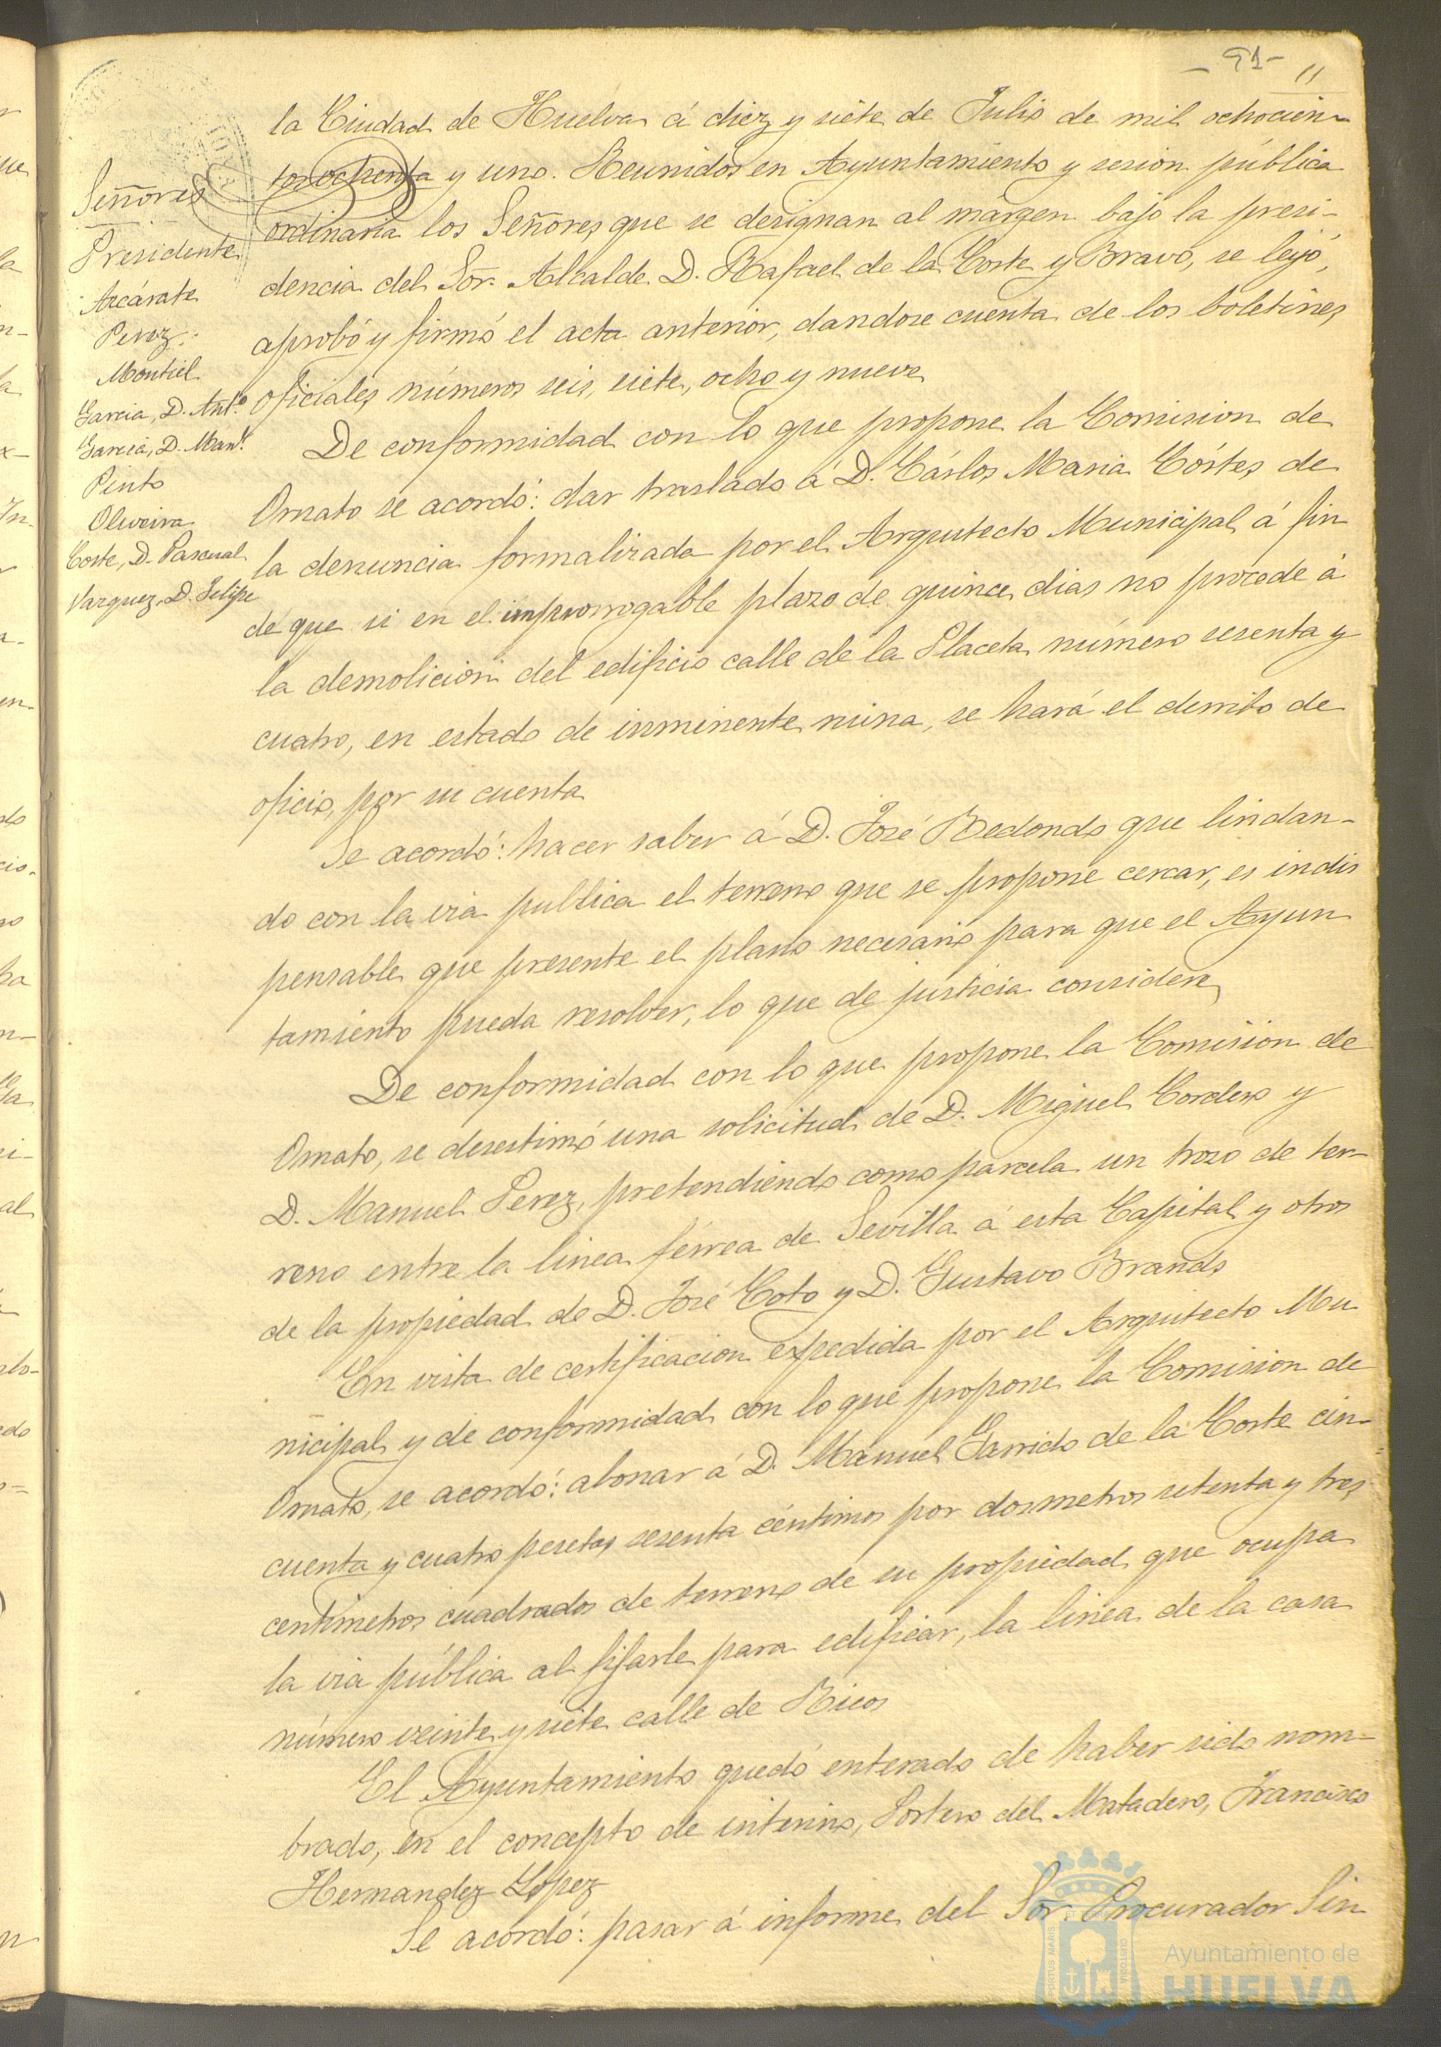 - 91 -
11
Señores
Presidente
Azcárate
Perez
Montiel
Garcia, D. Antº
Garcia, D. Manl.
Pinto
Oliveira
Corte, D. Pascual
Vazquez, D. Felipe
la Ciudad de Huelva á diez y siete de Julio de mil ochocien-
tos ochenta y uno. Reunidos en Ayuntamiento y sesion pública
ordinaria los Señores que se designan al margen bajo la presi-
dencia del Sor. Alcalde D. Rafael de la Corte y Bravo, se leyó,
aprobó y firmó el acta anterior, dandose cuenta de los boletines
oficiales números seis, siete, ocho y nueve
De conformidad con lo que propone la Comision de
Ornato se acordó: dar traslado á D. Cárlos Maria Córtes, de
la denuncia formalizada por el Arquitecto Municipal á fin
de que si en el improrrogable plazo de quince dias no procede á
la demolicion del edificio calle de la Placeta número sesenta y
cuatro, en estado de inminente ruina, se hará el derribo de
oficio, por su cuenta
Se acordó: hacer saber á D. José Redondo que lindan-
do con la via publica el terreno que se propone cercar, es indis
pensable que presente el plano necesario para que el Ayun
tamiento pueda resolver, lo que de justicia considere
De conformidad con lo que propone la Comision de
Ornato, se desestimó una solicitud de D. Miguel Cordero y
D. Manuel Perez, pretendiendo como parcela un trozo de ter-
reno entre la linea férrea de Sevilla á esta Capital y otros
de la propiedad de D. José Coto y D. Gustavo Brands
En vista de certificacion expedida por el Arquitecto Mu
nicipal y de conformidad con lo que propone la Comision de
Ornato, se acordó: abonar á D. Manuel Garrido de la Corte cin-
cuenta y cuatro pesetas sesenta céntimos por dos metros setenta y tres
centimetros cuadrados de terreno de su propiedad que ocupa
la via pública al fijarle para edificar, la linea de la casa
número veinte y siete calle de Ricos
El Ayuntamiento quedó enterado de haber sido nom-
brado, en el concepto de interino, Portero del Matadero, Francisco
Hernandez Lopez
Se acordó: pasar á informe del Sor. Procurador Sin
PORTUS MARIS
CUSTODIA
Ayuntamiento de
HUELVA